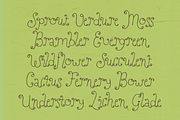 Sprout Verdure Moss
Brambler Evergreen
Wildflower Succulent
Cactus Fernery Bower
Understory Lichen Glade